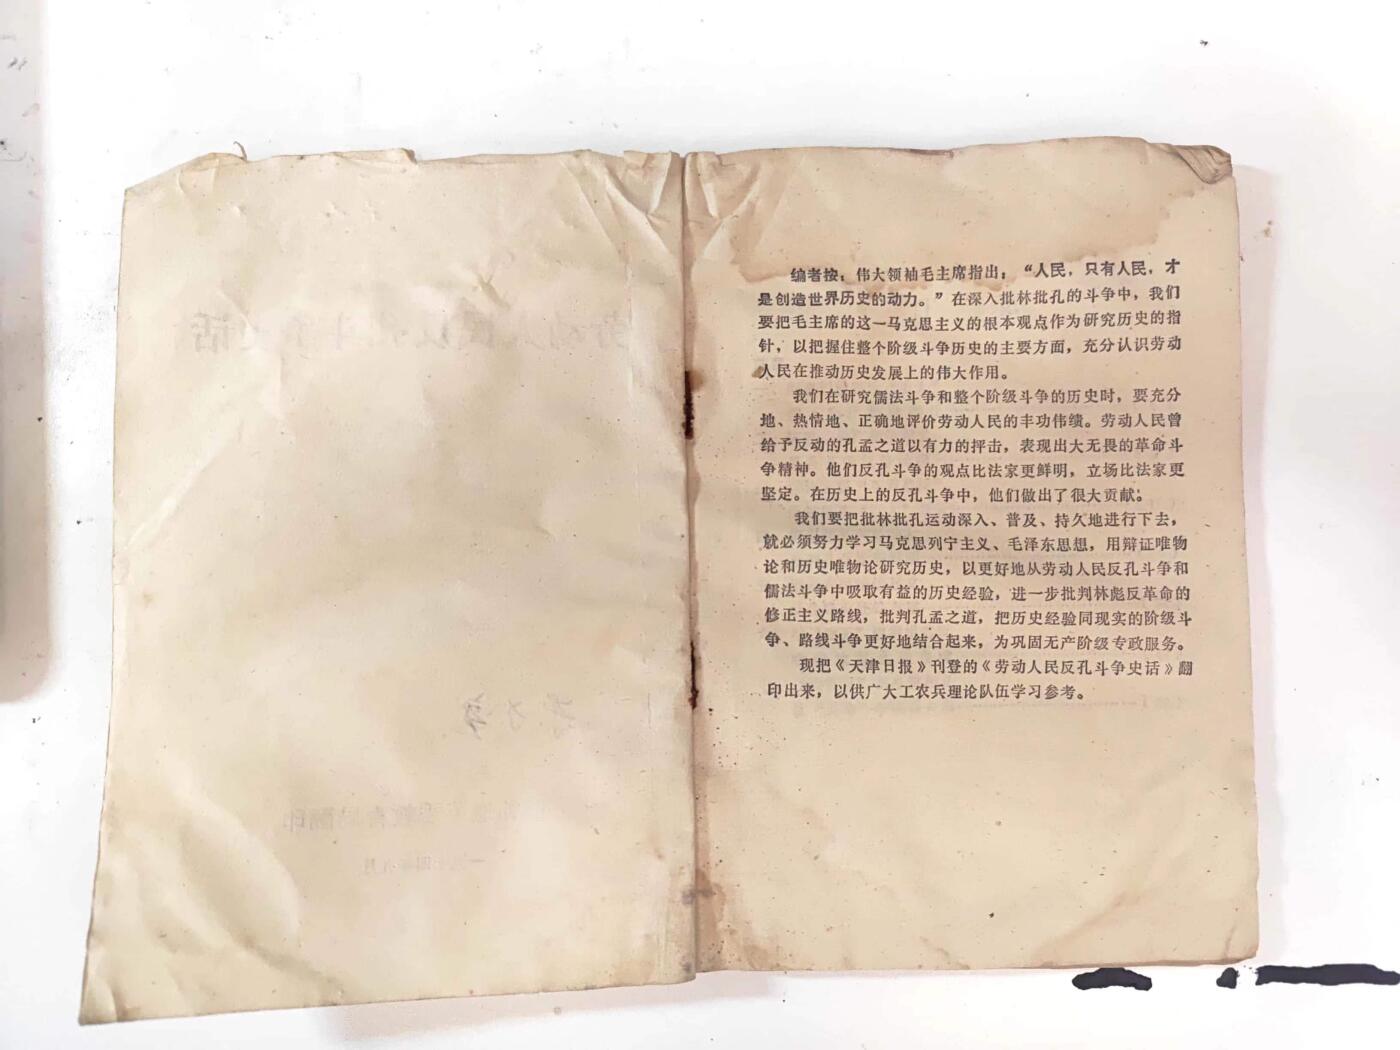 编者按：伟大领袖毛主席指出：“人民，只有人民，才
是创造世界历史的动力。”在深入批林批孔的斗争中，我们
要把毛主席的这一马克思主义的根本观点作为研究历史的指
针，以把握住整个阶级斗争历史的主要方面，充分认识劳动
人民在推动历史发展上的伟大作用。
我们在研究儒法斗争和整个阶级斗争的历史时，要充分
地、热情地、正确地评价劳动人民的丰功伟绩。劳动人民曾
给予反动的孔孟之道以有力的抨击，表现出大无畏的革命斗
争精神。他们反孔斗争的观点比法家更鲜明，立场比法家更
坚定。在历史上的反孔斗争中，他们做出了很大贡献。
我们要把批林批孔运动深入、普及、持久地进行下去，
就必须努力学习马克思列宁主义、毛泽东思想，用辩证唯物
论和历史唯物论研究历史，以更好地从劳动人民反孔斗争和
儒法斗争中吸取有益的历史经验，进一步批判林彪反革命的
修正主义路线，批判孔孟之道，把历史经验同现实的阶级斗
争、路线斗争更好地结合起来，为巩固无产阶级专政服务。
现把《天津日报》刊登的《劳动人民反孔斗争史话》翻
印出来，以供广大工农兵理论队伍学习参考。